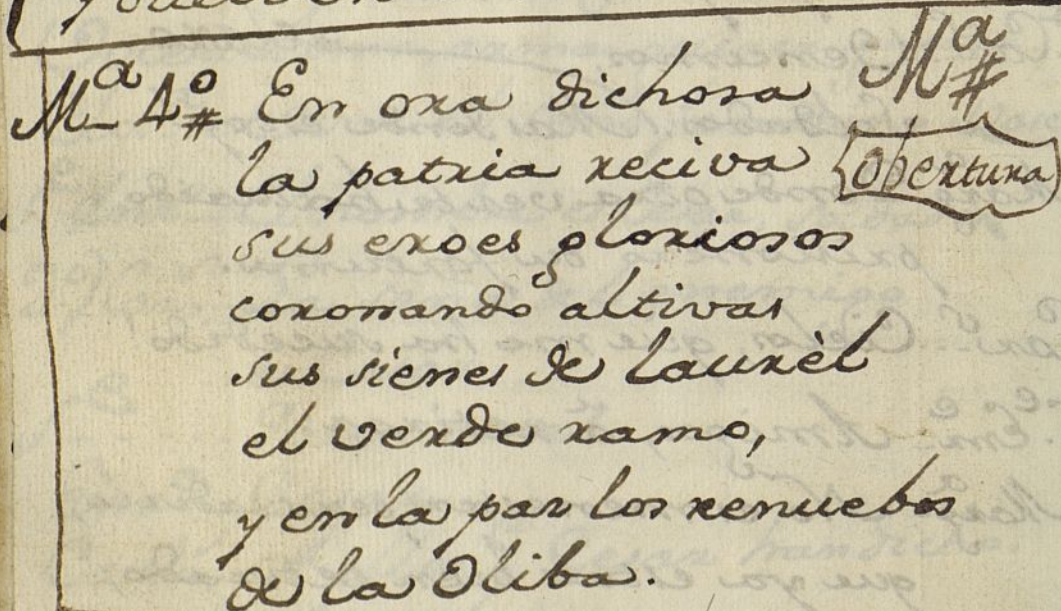 Mª 4º # En ora dichosa Mª #
la patria reciva Obertura
sus eroes gloriosos
coronando altivas
sus sienes de laurèl
el verde ramo,
y en la paz los renuebos
de la Oliba.